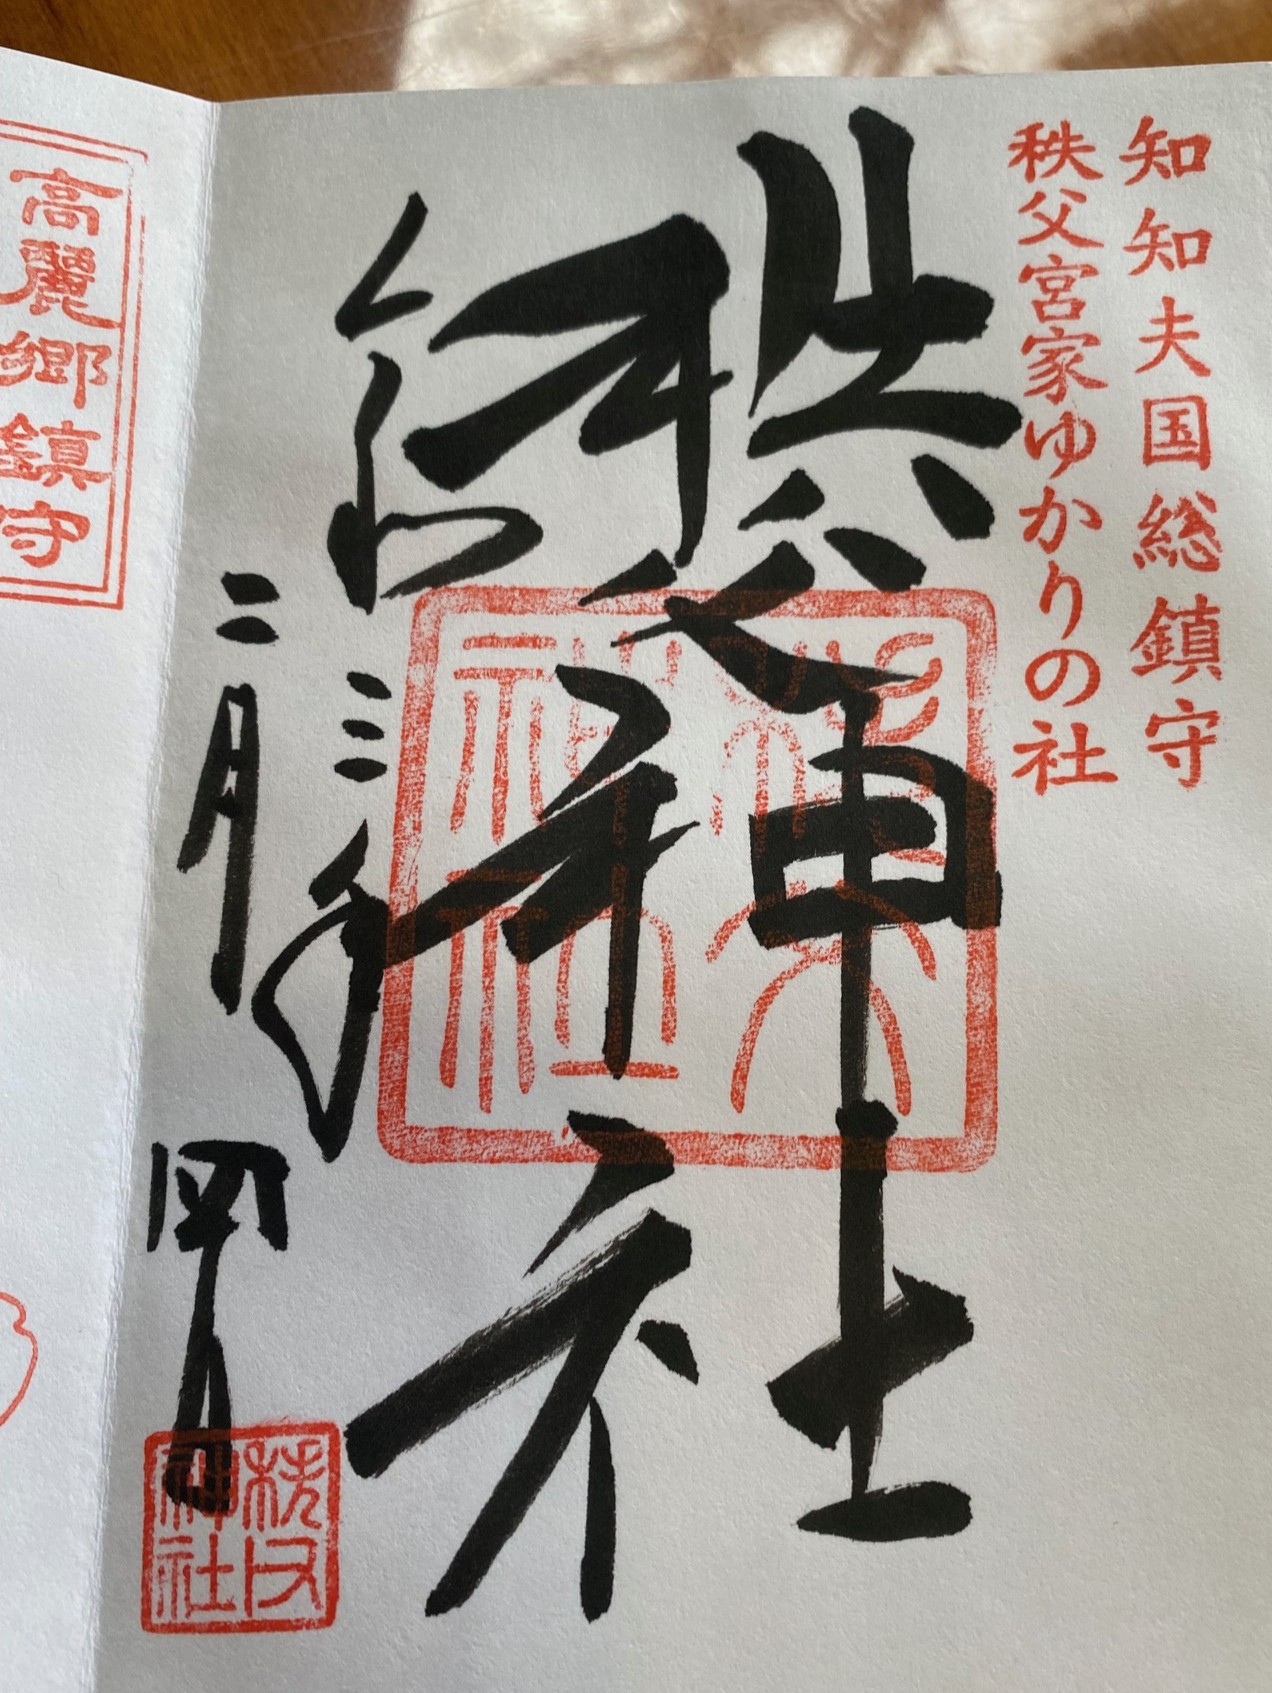 知知夫国総鎮守
秩父宮家ゆかりの社
秩父神社
秩父神社
令和三年
二月四日
秩父神社
高麗郷鎮守